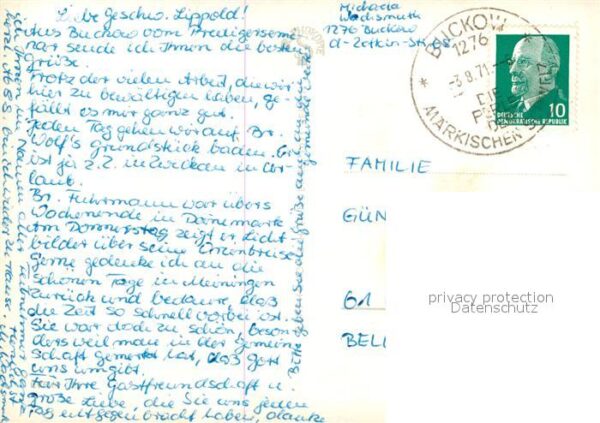 Liebe Geschw. Lippold!
Aus Buckow vom Predigersemi-
nar sende ich Ihnen die besten
Grüße.
Trotz der vielen Arbeit, die wir
hier zu bewältigen haben, ge-
fällt es mir ganz gut.
Jeden Tag gehen wir auf Br.
Wolf's Grundstück baden. Er
ist z. Z. in Zwickau in Ur-
laub.
Br. Fuhrmann war übers
Wochenende in Dänemark
Am Donnerstag zeigt er Licht
bilder über seine
Gerne gedenke ich an die
schönen Tage in Meiningen
zurück und bedaure, daß
die Zeit so schnell vorbei ist.
Sie war doch zu schön, beson
ders weil man in der Gemein
schaft gemerkt hat, daß Gott
uns umgibt.
Für Ihre Gastfreundschaft u.
große Liebe, die Sie uns jeden
Tag entgegen bracht haben, danke
ich Ihnen im Namen aller
Bitte geben Sie die Grüße an
Michaela
Wachsmuth
1276 Buckow
Cl-Zetkin-Str. 68
BUCKOW
1276
-3.8.71
DIE
PERLE
DER
MÄRKISCHEN SCHWEIZ
10
DEUTSCHE
DEMOKRATISCHE REPUBLIK
FAMILIE
GÜN
61
BEL
privacy protection
Datenschutz